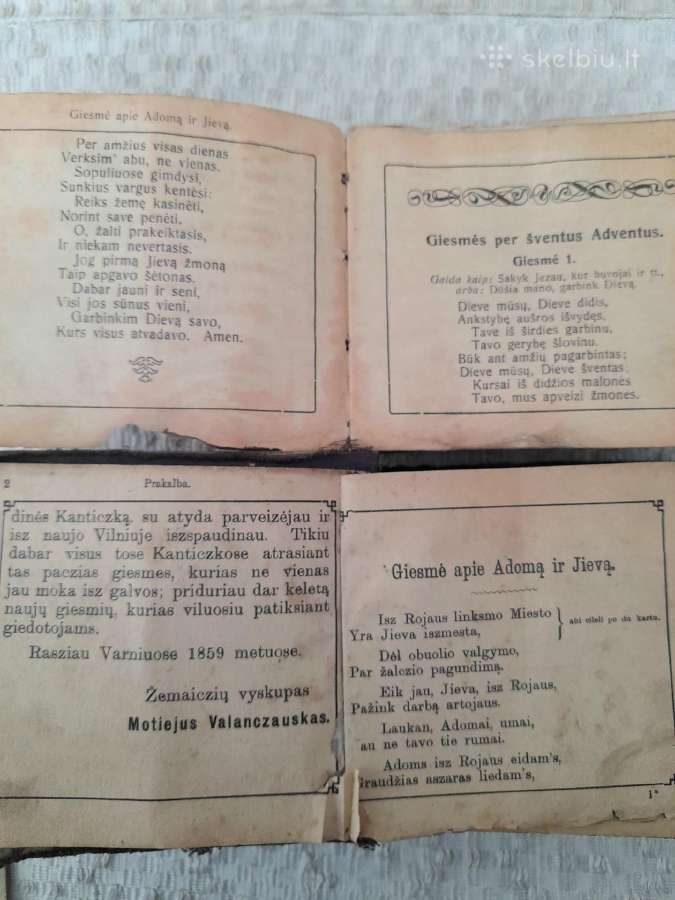 skelbiu.lt
Giesmė apie Adomą ir Jievą.
Per amžius visas dienas
Verksim' abu, ne vienas.
Sopuliuose gimdysi,
Sunkius vargus kentėsi:
Reiks žemę kasinėti,
Norint save penėti.
O, žalti prakeiktasis,
Ir niekam nevertasis.
Jog pirmą Jievą žmoną
Taip apgavo šėtonas.
Dabar jauni ir seni,
Visi jos sūnus vieni,
Garbinkim Dievą savo,
Kurs visus atvadavo. Amen.
Giesmės per šventus Adventus.
Giesmė 1.
Gaida kaip: Sakyk Jezau, kur buvojai ir tt.,
arba: Dūšia mano, garbink Dievą.
Dieve mūsų, Dieve didis,
Ankstybę aušros išvydęs,
Tave iš širdies garbinu,
Tavo gerybę šlovinu.
Būk ant amžių pagarbintas;
Dieve mūsų, Dieve šventas;
Kursai iš didžios malonės
Tavo, mus apveizi žmones.
2 Prakalba.
dinės Kanticzką, su atyda parveizėjau ir
isz naujo Vilniuje iszspaudinau. Tikiu
dabar visus tose Kanticzkose atrasiant
tas paczias giesmes, kurias ne vienas
jau moka isz galvos; priduriau dar keletą
naujų giesmių, kurias viluosiu patiksiant
giedotojams.
Rasziau Varniuose 1859 metuose.
Žemaiczių vyskupas
Motiejus Valanczauskas.
Giesmė apie Adomą ir Jievą.
Isz Rojaus linksmo Miesto
Yra Jieva iszmesta,
abi eileli po du kartu.
Dėl obuolio valgymo,
Par žalczio pagundimą.
Eik jau, Jieva, isz Rojaus,
Pažink darbą artojaus.
Laukan, Adomai, umai,
au ne tavo tie rumai.
Adoms isz Rojaus eidam's,
Graudžias aszaras liedam's,
1*